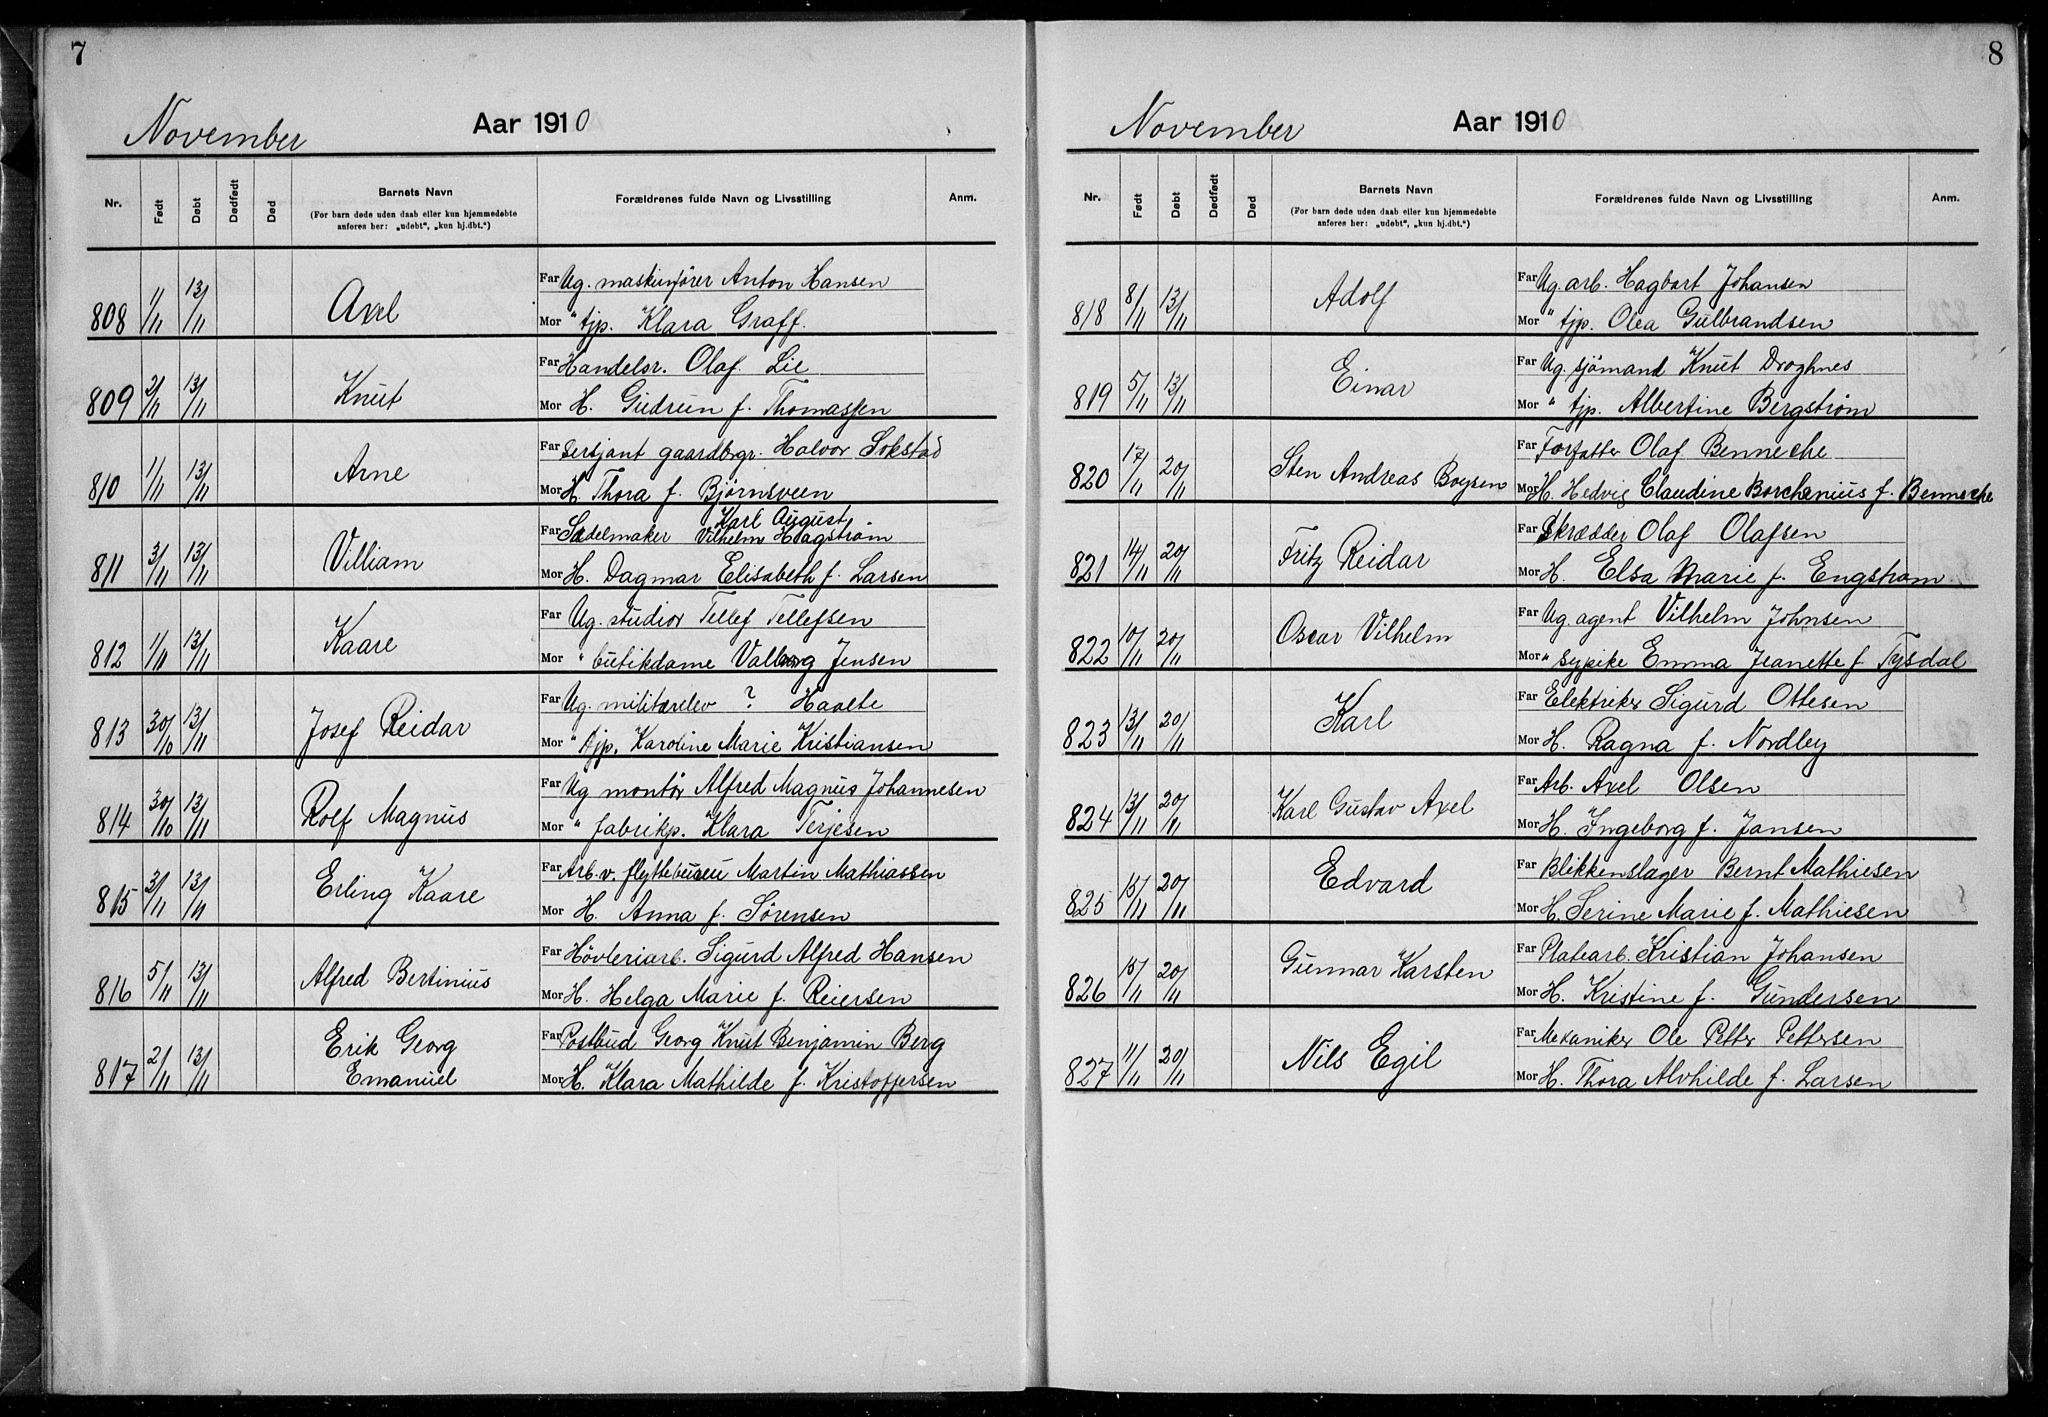 7
November Aar 1910
Nr. Født Døbt Dødfødt Død Barnets Navn Forældrenes fulde Navn og Livsstilling Anm.
(For barn døde uden daab eller kun hjemmedøbte
anføres her: „udøbt“, „kun hj.dbt.“)
808 1/11 13/11 Axel Far Ug. maskinfører Anton Hansen
Mor " tjp. Klara Graff.
809 2/11 13/11 Knut Far Handelsr. Olaf Lie
Mor H. Gudrun f. Thomassen
810 1/11 13/11 Arne Far Sersjant gaardbrgr. Halvor Sokstad
Mor H. Thora f. Bjørnsveen
811 3/11 13/11 Villiam Far Sadelmaker Karl August Vilhelm Hagstrøm
Mor H. Dagmar Elisabeth f. Larsen
812 1/11 13/11 Kaare Far Ug. studior Tellef Tellefsen
Mor " butikdame Valborg Jensen
813 30/10 13/11 Josef Reidar Far Ug. militærelev ? Haalte
Mor " tjp. Karoline Marie Kristiansen
814 30/10 13/11 Rolf Magnus Far Ug montør Alfred Magnus Johannesen
Mor " fabrikp. Klara Terjesen
815 3/11 13/11 Erling Kaare Far Arb. v. flyttebureu Martin Mathiassen
Mor H. Anna f. Sørensen
816 5/11 13/11 Alfred Bertinius Far Høvleriarb. Sigurd Alfred Hansen
Mor H. Helga Marie f. Reiersen
817 2/11 13/11 Erik Georg Emanuel Far Postbud Georg Knut Benjamin Berg
Mor H. Klara Mathilde f. Kristoffersen
8
November Aar 1910
Nr. Født Døbt Dødfødt Død Barnets Navn Forældrenes fulde Navn og Livsstilling Anm.
(For barn døde uden daab eller kun hjemmedøbte
anføres her: „udøbt“, „kun hj.dbt.“)
818 8/11 13/11 Adolf Far Ug. arb. Hagbart Johansen
Mor " tjp. Olea Gulbrandsen
819 5/11 13/11 Einar Far Ug. sjømand Knut Droghnes
Mor " tjp. Albertine Bergstrøm
820 17/11 20/11 Sten Andreas Boysen Far Forfatter Olaf Benneche
Mor H. Hedvig Claudine Borchenius f. Benneche
821 14/11 20/11 Fritz Reidar Far Skrædder Olaf Olafsen
Mor H. Elsa Marie f. Engstrøm
822 10/11 20/11 Oscar Vilhelm Far Ug. agent Vilhelm Johnsen
Mor " sypike Emma Jeanette f. Tysdal
823 13/11 20/11 Karl Far Elektriker Sigurd Ottesen
Mor H. Ragna f. Nordby
824 13/11 20/11 Karl Gustav Axel Far Arb. Axel Olsen
Mor H. Ingeborg f. Jansen
825 15/11 20/11 Edvard Far Blikkenslager Bernt Mathiesen
Mor H. Serine Marie f. Mathiesen
826 15/11 20/11 Gunnar Karsten Far Platearb. Kristian Johansen
Mor H. Kristine f. Gundersen
827 11/11 20/11 Nils Egil Far Mekaniker Ole Petter Pettersen
Mor H. Thora Alvhilde f. Larsen